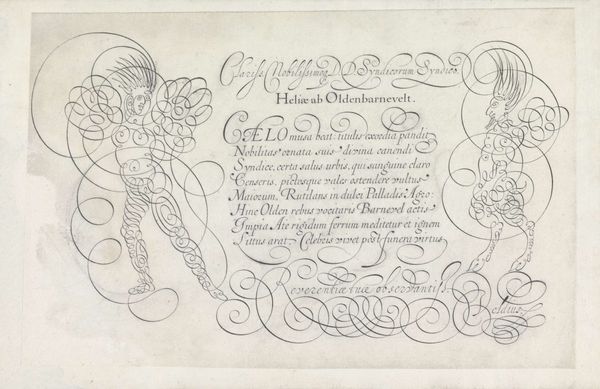 Clariss. Nobilissimoq. D. D. Syndicorum Syndico.
Heliæ ab Oldenbarnevelt.
CÆLO musa beat: titulis exordia pandit
Nobilitas ornata suis: divina canendi
Syndice, certa salus urbis, qui sanguine claro
Censeris, pictosque vales ostendere vultus
Maiorum, Rutilans in dulci Palladis Agro:
Hinc Olden rebus vocitaris Barnevel actis
Impia Ate rigidum ferrum meditetur et ignem
Littus arat: Celebris vivet post funera virtus.
Reverentiæ tuæ observantiss.